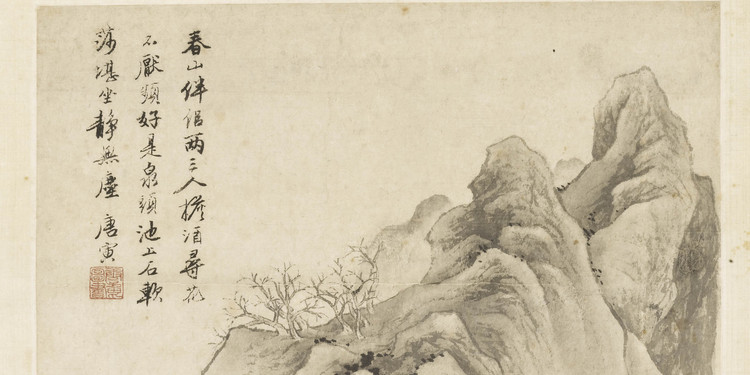 春山伴侣两三人擔酒尋花
不厭頻好是泉頭池上石軟
莎堪坐靜無塵 唐寅